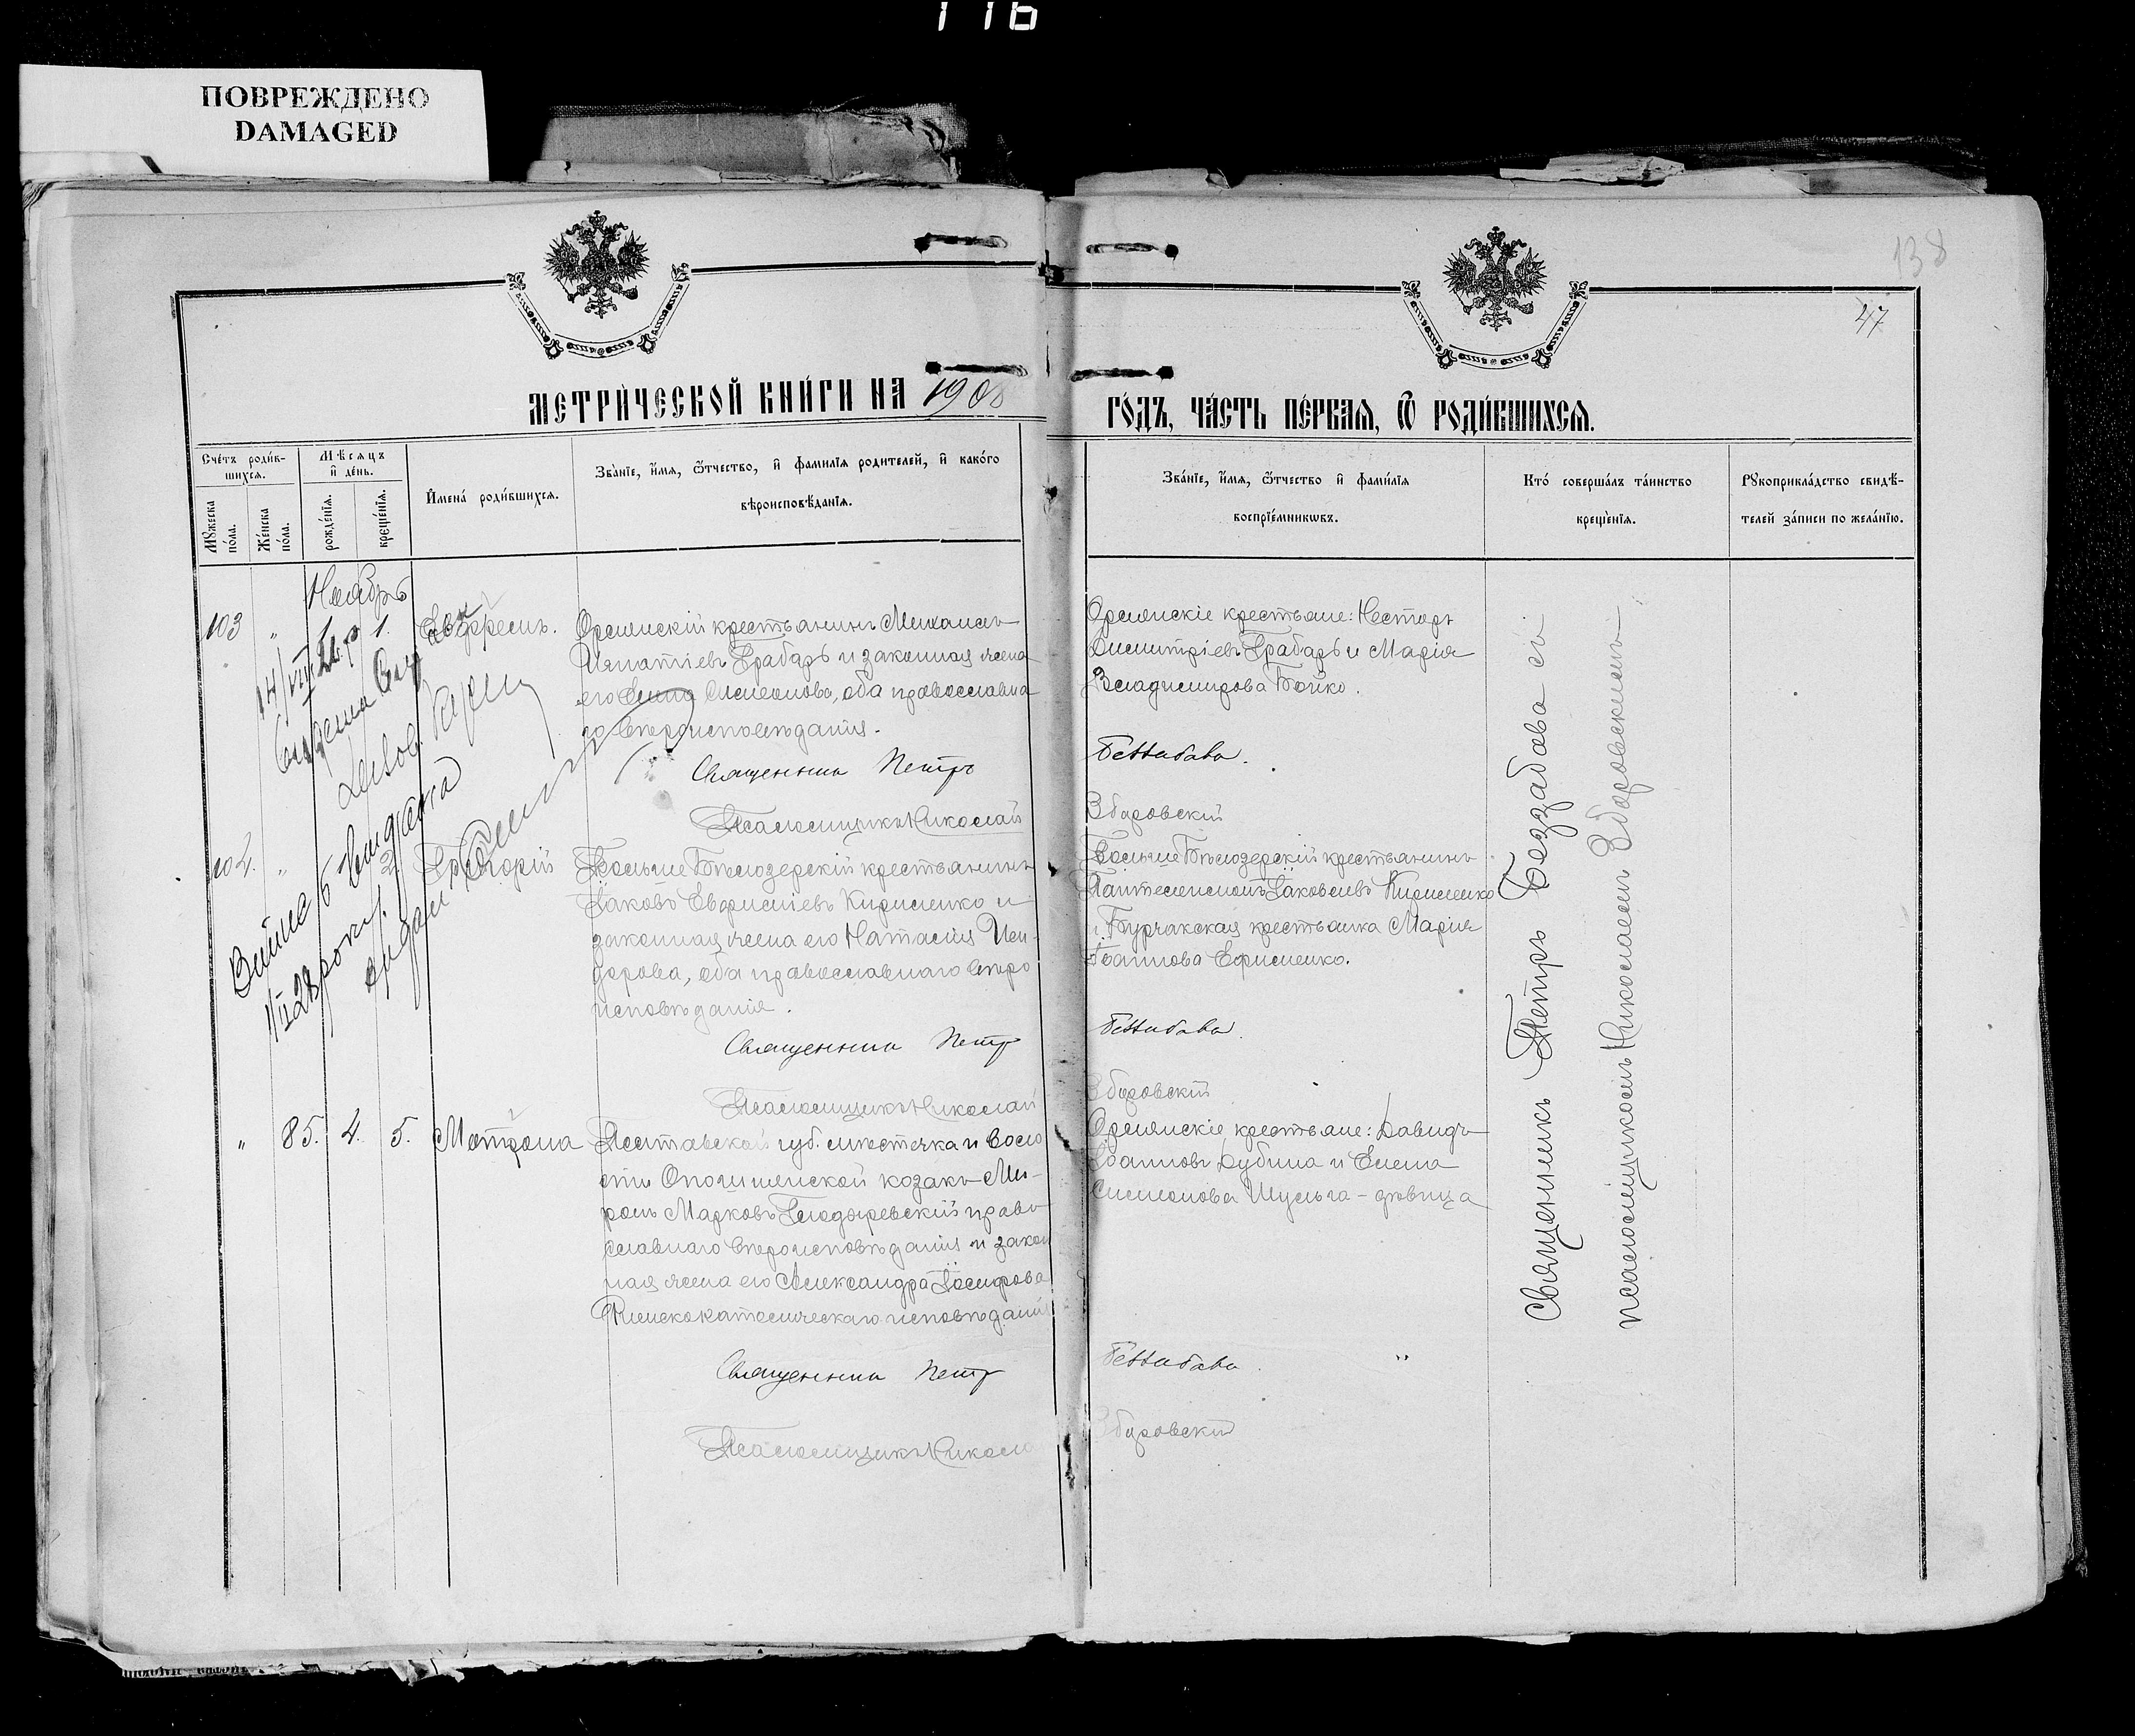 116
ПОВРЕЖДЕНО
DAMAGED
138
47
МЕТРИ́ЧЕСКОЙ КНИ́ГИ НА 1908
ГО́ДЪ, ЧА́СТЬ ПЕ́РВАЯ, Ѿ РОДИ́ВШИХСЯ.
Сче́тъ роди́в-
шихся.
Мꙋжеска по́ла.
Же́нска по́ла.
Мѣсяцъ
и де́нь.
рожде́нїя.
креще́нїя.
Имена́ роди́вшихся.
Зва́нїе, и́мя, ѻ́тчество, и фамилїя родителей, и како́го
вѣроисповѣ́данїя.
Зва́нїе, и́мя, ѻ́тчество и фами́лїя
воспрїе́мникѡвъ.
Кто́ соверша́лъ та́инство
креще́нїя.
Рꙋкоприкла́дство свидѣ́-
телей за́писи по жела́нїю.
Ноябрь
103 " 1.
Орлянскій крестьянинъ Михаилъ
Игнатіевъ Грабаръ и законная жена
его Симеонова, оба православна
го вѣроисповѣданія.
Священник Петръ
Псаломщикъ Николай
Орлянскіе крестьяне: Несторъ
Димитріевъ Грабаръ и Марія
Владимирова Бойко.
Беззабава.
Зборовскій
104. " 2. Григорій
Больше Бѣлозерскій крестьянинъ
Іаковъ Кириленко и
законная жена его Наталія Иси-
дорова, оба православнаго вѣро
исповѣданія.
Священник Петр
Псаломщикъ Николай
Больше Бѣлозерскій крестьянинъ
Пантелеимонъ Іаковлевъ Кириленко
и Бурчакская крестьянка Марія
Іоаннова Ефименко.
Беззабава.
Зборовскій
" 85. 4. 5. Матрона
Полтавской губ. мѣстечка и воло
сти Опошнянской козакъ Ми-
ронъ Марковъ право
славнаго вѣроисповѣданія и закон
ная жена его Александра Іосифова
Римскокатолическаго исповѣданія
Священник Петр
Псаломщикъ Никола
Орлянскіе крестьяне: Давидъ
Іоанновъ Дубина и Елена
Симеонова Шульга - дѣвица
Беззабава. "
Зборовскій
Священникъ Петръ Беззабава съ
псаломщикомъ Николаемъ Зборовскимъ